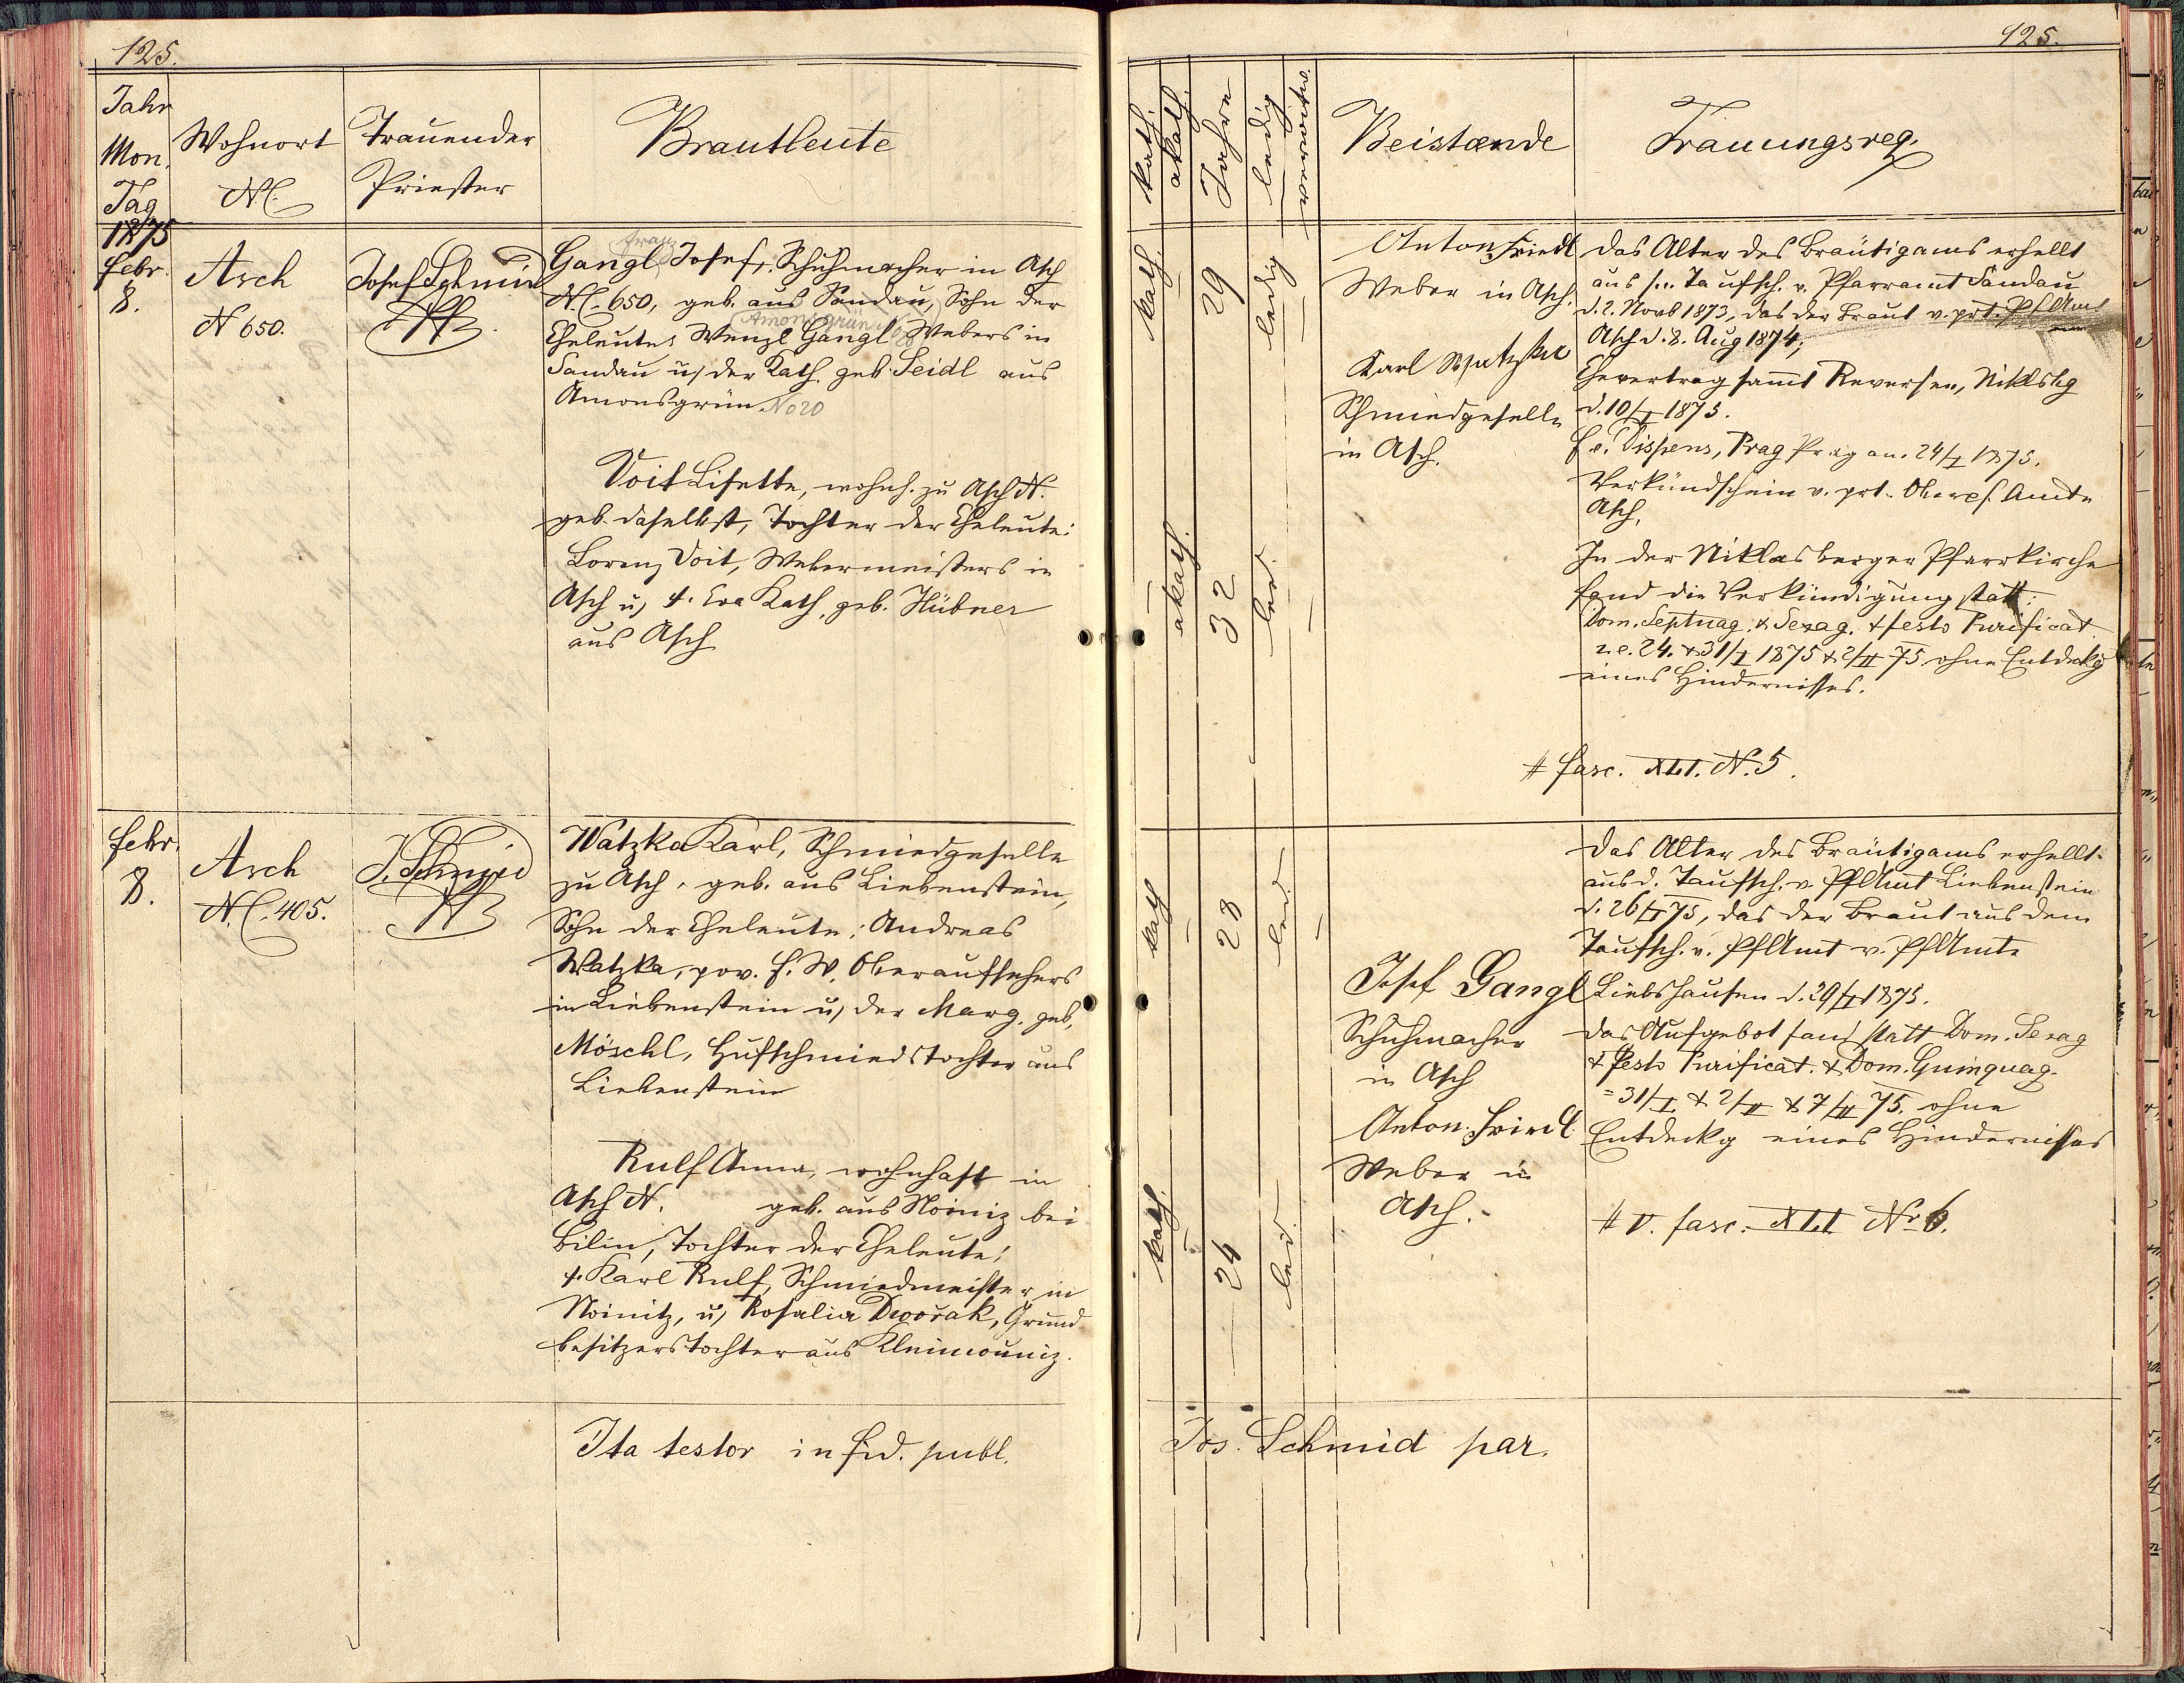 125.
Jahr
Mon.
Tag
Wohnort
N.C.
Trauender
Priester
Brautleute
1875
Febr.
8.
Asch
N 650.
Josef Schmid
Franz
Gangl Josef, Schuhmacher in Asch
N.C. 650, geb. aus Sandau, Sohn der
Amonsgrün No
Eheleute: Wenzl Gangl Webers in
Sandau u. der Kath. geb. Seidl aus
Amonsgrün No 20
Voit Lisette, wohnh. zu Asch N.
geb. daselbst, Tochter der Eheleute:
Lorenz Voit, Webermeisters in
Asch u. †. Eva Kath. geb. Hübner
aus Asch
Febr.
8.
Asch
N.C. 405.
J. Schmid
Watzka Karl, Schmiedgeselle
zu Asch, geb. aus Liebenstein,
Sohn der Eheleute: Andreas
Watzka, pov. f. W. Oberaufsehers
in Liebenstein u. der Marg. geb.
Möschl, Hufschmiedstochter aus
Liebenstein
Rulf Anna, wohnhaft in
Asch N. geb. aus Noiniz bei
Bilin, Tochter der Eheleute:
†. Karl Rulf, Schmiedmeister in
Noinitz, u. Rosalia Dwořak, Grund
besitzerstochter aus
Ita testor in fid. publ.
125.
kath.
akath.
Jahre
ledig
verwitw.
Beistænde
Trauungsreg.
kath.
29
ledig
akath.
32
led.
Anton Friedl
Weber in Asch.
Karl Watzka
Schmiedgeselle
in Asch.
Das Alter des Bräutigams erhellt
aus s. Taufsch. v. Pfarramt Sandau
d. 2. Novb 1873, das der Braut v. prt. PfAmt
Asch d. 8. Aug 1874;
Ehevertrag sammt Reversen, Niklsbg
d. 10/I 1875.
f. e. Dispens, Prag Prag an. 24/I 1875.
Verkündschein v. prt. Oberpf. Amte
Asch.
In der Niklasberger Pfarrkirche
fand die Verkündigung statt:
Dom. Septuag. & Sexag. & festo Purificat.
i. e. 24. & 31/I 1875 & 2/II 75 ohne Entdeckg
eines Hindernisses.
# fasc. XLI. N. 5.
kath
28
led.
kath.
24
led.
Josef Gangl
Schuhmacher
in Asch
Anton Friedl.
Weber in
Asch.
Das Alter des Bräutigams erhellt
aus d. Taufsch. v. PfAmt Liebenstein
d. 26/I 75, das der Braut aus dem
Taufsch. v. PfAmt v. PfAmte
Liebshausen d. 29/I 1875.
Das Aufgebot fand statt Dom. Sexag
& Festo Purificat. & Dom. Quinquag.
= 31/I & 2/II & 7/II 75. ohne
Entdeckg eines Hindernisses
# v. fasc. XLI Nr 6.
Jos. Schmid par.